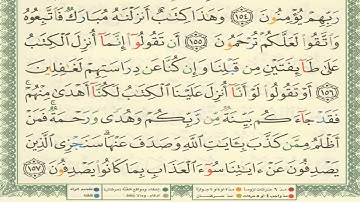 رَبِّهِمْ يُؤْمِنُونَ ١٥٤ وَهَٰذَا كِتَٰبٌ أَنزَلْنَٰهُ مُبَارَكٌ فَٱتَّبِعُوهُ
وَٱتَّقُوا۟ لَعَلَّكُمْ تُرْحَمُونَ ١٥٥ أَن تَقُولُوٓا۟ إِنَّمَآ أُنزِلَ ٱلْكِتَٰبُ
عَلَىٰ طَآئِفَتَيْنِ مِن قَبْلِنَا وَإِن كُنَّا عَن دِرَاسَتِهِمْ لَغَٰفِلِينَ
١٥٦ أَوْ تَقُولُوا۟ لَوْ أَنَّآ أُنزِلَ عَلَيْنَا ٱلْكِتَٰبُ لَكُنَّآ أَهْدَىٰ مِنْهُمْ ۚ
فَقَدْ جَآءَكُم بَيِّنَةٌ مِّن رَّبِّكُمْ وَهُدًى وَرَحْمَةٌ ۚ فَمَنْ
أَظْلَمُ مِمَّن كَذَّبَ بِـَٔايَٰتِ ٱللَّهِ وَصَدَفَ عَنْهَا ۗ سَنَجْزِى ٱلَّذِينَ
يَصْدِفُونَ عَنْ ءَايَٰتِنَا سُوٓءَ ٱلْعَذَابِ بِمَا كَانُوا۟ يَصْدِفُونَ ١٥٧